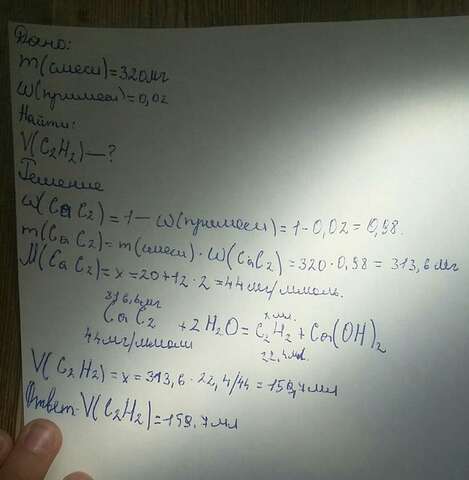 Дано:
m(смеси)=320мг
ω(примеси)=0,02
Найти:
V(C2H2)—?
Решение
ω(CaC2)=1—ω(примеси)=1-0,02=0,98.
m(CaC2)=m(смеси)·ω(CaC2)=320·0,98=313,6мг
M(CaC2)=x=20+12·2=44мг/ммоль.
313,6мг x мл.
CaC2 +2H2O=C2H2+Ca(OH)2
44мг/ммоль 22,4мл
V(C2H2)=x=313,6·22,4/44=159,7мл
Ответ:V(C2H2)=159.7мл